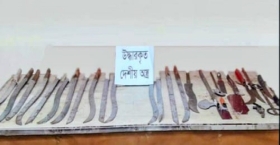 উদ্ধারকৃত
দেশীয় অস্ত্র